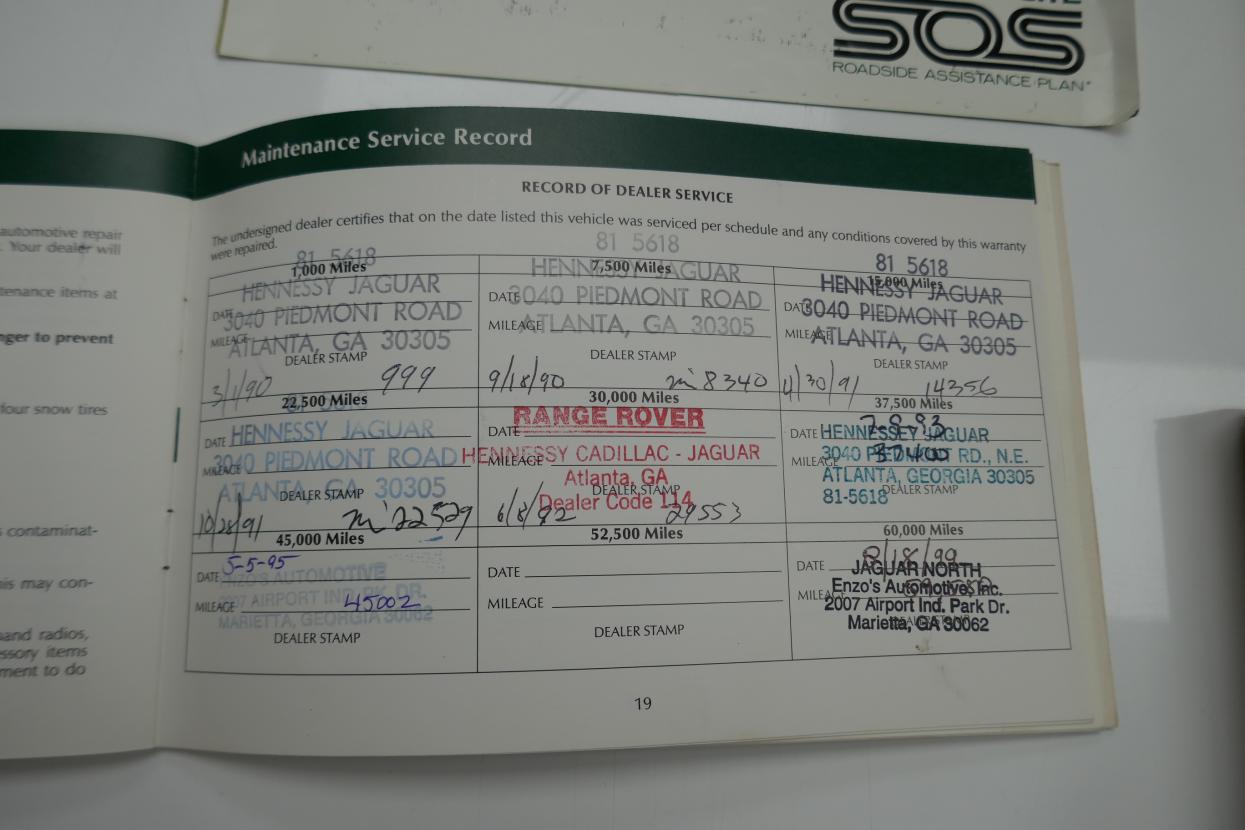 SOS
ROADSIDE ASSISTANCE PLAN
automotive repair
. Your dealer will
tenance items at
nger to prevent
four snow tires
s contaminat-
his may con-
and radios,
ssory items
ment to do
Maintenance Service Record
RECORD OF DEALER SERVICE
The undersigned dealer certifies that on the date listed this vehicle was serviced per schedule and any conditions covered by this warranty
were repaired.
81 5618
1,000 Miles
HENNESSY JAGUAR
DATE
3040 PIEDMONT ROAD
MILEAGE
ATLANTA, GA 30305
DEALER STAMP
3/1/90 999
81 5618
7,500 Miles
HENNESSY JAGUAR
DATE
3040 PIEDMONT ROAD
MILEAGE
ATLANTA, GA 30305
DEALER STAMP
9/18/90 mi 8340
81 5618
15,000 Miles
HENNESSY JAGUAR
DATE
3040 PIEDMONT ROAD
MILEAGE
ATLANTA, GA 30305
DEALER STAMP
/30/91 14356
22,500 Miles
DATE HENNESSY JAGUAR
MILEAGE
3040 PIEDMONT ROAD
ATLANTA, GA 30305
DEALER STAMP
10/28/91 mi 22529
30,000 Miles
RANGE ROVER
DATE
HENNESSY CADILLAC - JAGUAR
MILEAGE
Atlanta, GA
DEALER STAMP
Dealer Code 114
6/8/92 29553
37,500 Miles
DATE HENNESSEY JAGUAR
MILEAGE 3040 PIEDMONT RD., N.E.
37400
ATLANTA, GEORGIA 30305
81-5618 DEALER STAMP
45,000 Miles
5-5-95
DATE
ENZO'S AUTOMOTIVE
2007 AIRPORT IND. PK. DR.
MILEAGE 45002
MARIETTA, GEORGIA 30062
DEALER STAMP
52,500 Miles
DATE
MILEAGE
DEALER STAMP
60,000 Miles
/18/99
DATE JAGUAR NORTH
Enzo's Automotive, Inc.
MILEAGE
2007 Airport Ind. Park Dr.
Marietta, GA 30062
19